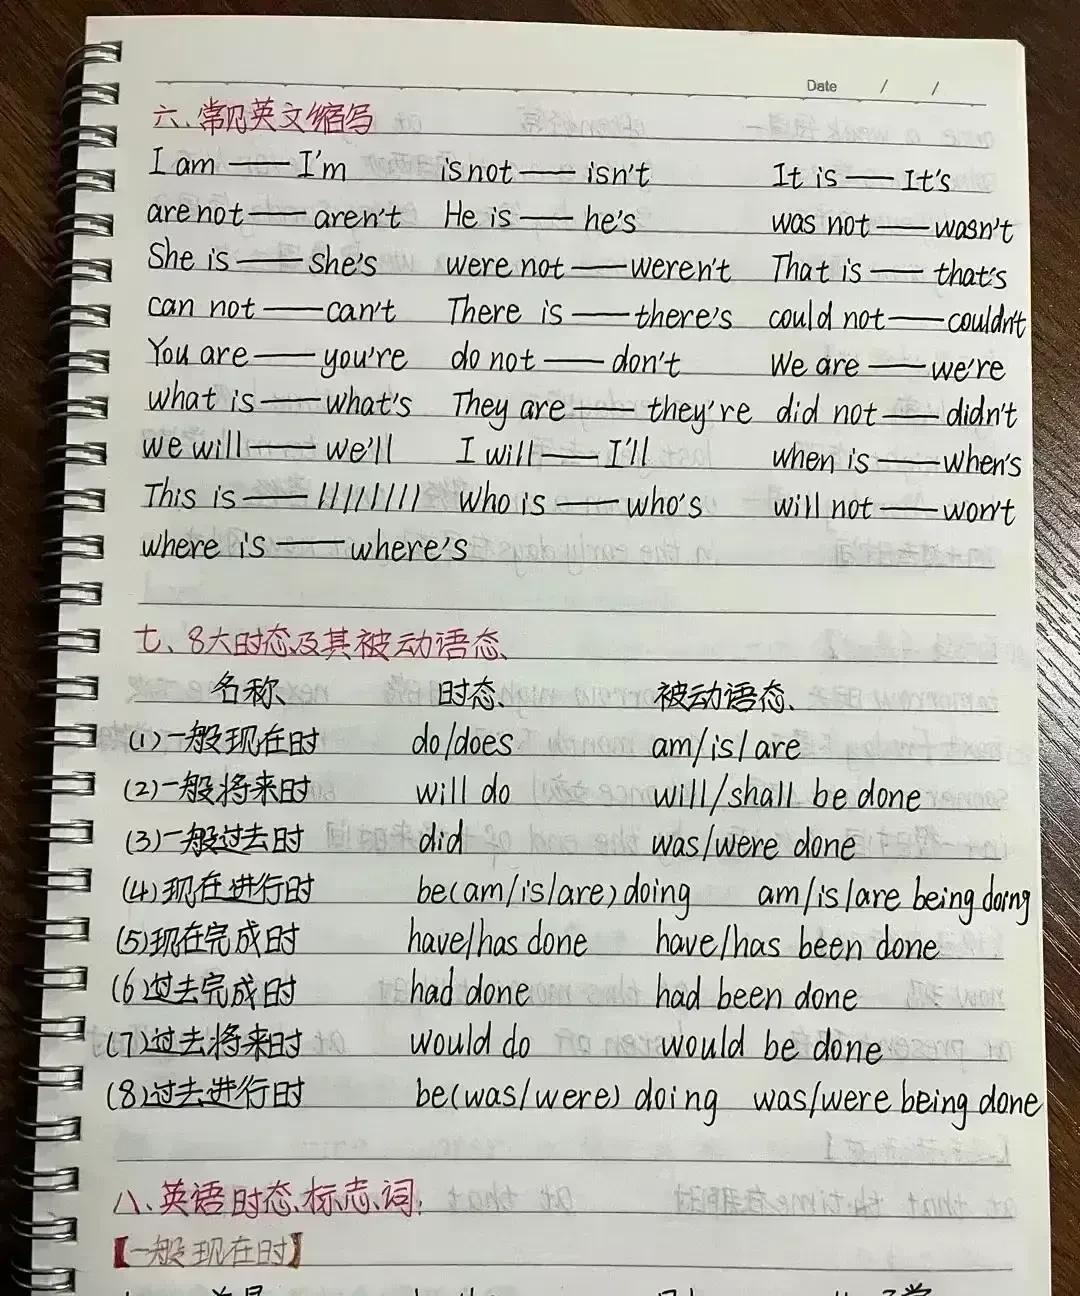 Date / /
六、常见英文缩写
I am —— I'm is not —— isn't It is —— It's
are not —— aren't He is —— he's was not —— wasn't
She is —— she's were not —— weren't That is —— that's
can not —— can't There is —— there's could not —— couldn't
You are —— you're do not —— don't We are —— we're
what is —— what's They are —— they're did not —— didn't
we will —— we'll I will —— I'll when is —— when's
This is —— ///////// Who is —— who's will not —— won't
where is —— where's
七、8大时态及其被动语态
名称 时态 被动语态
(1)一般现在时 do/does am/is/are
(2)一般将来时 will do will/shall be done
(3)一般过去时 did was/were done
(4)现在进行时 be(am/is/are)doing am/is/are being doing
(5)现在完成时 have/has done have/has been done
(6)过去完成时 had done had been done
(7)过去将来时 would do would be done
(8)过去进行时 be(was/were) doing was/were being done
八、英语时态标志词:
【一般现在时】